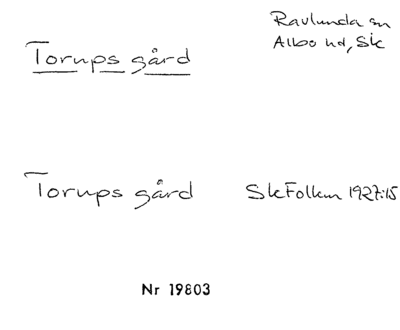 Torups gård
Ravlunda sn
Albo hd, Sk
Torups gård
SkFolkm 1927:15
Nr 19803